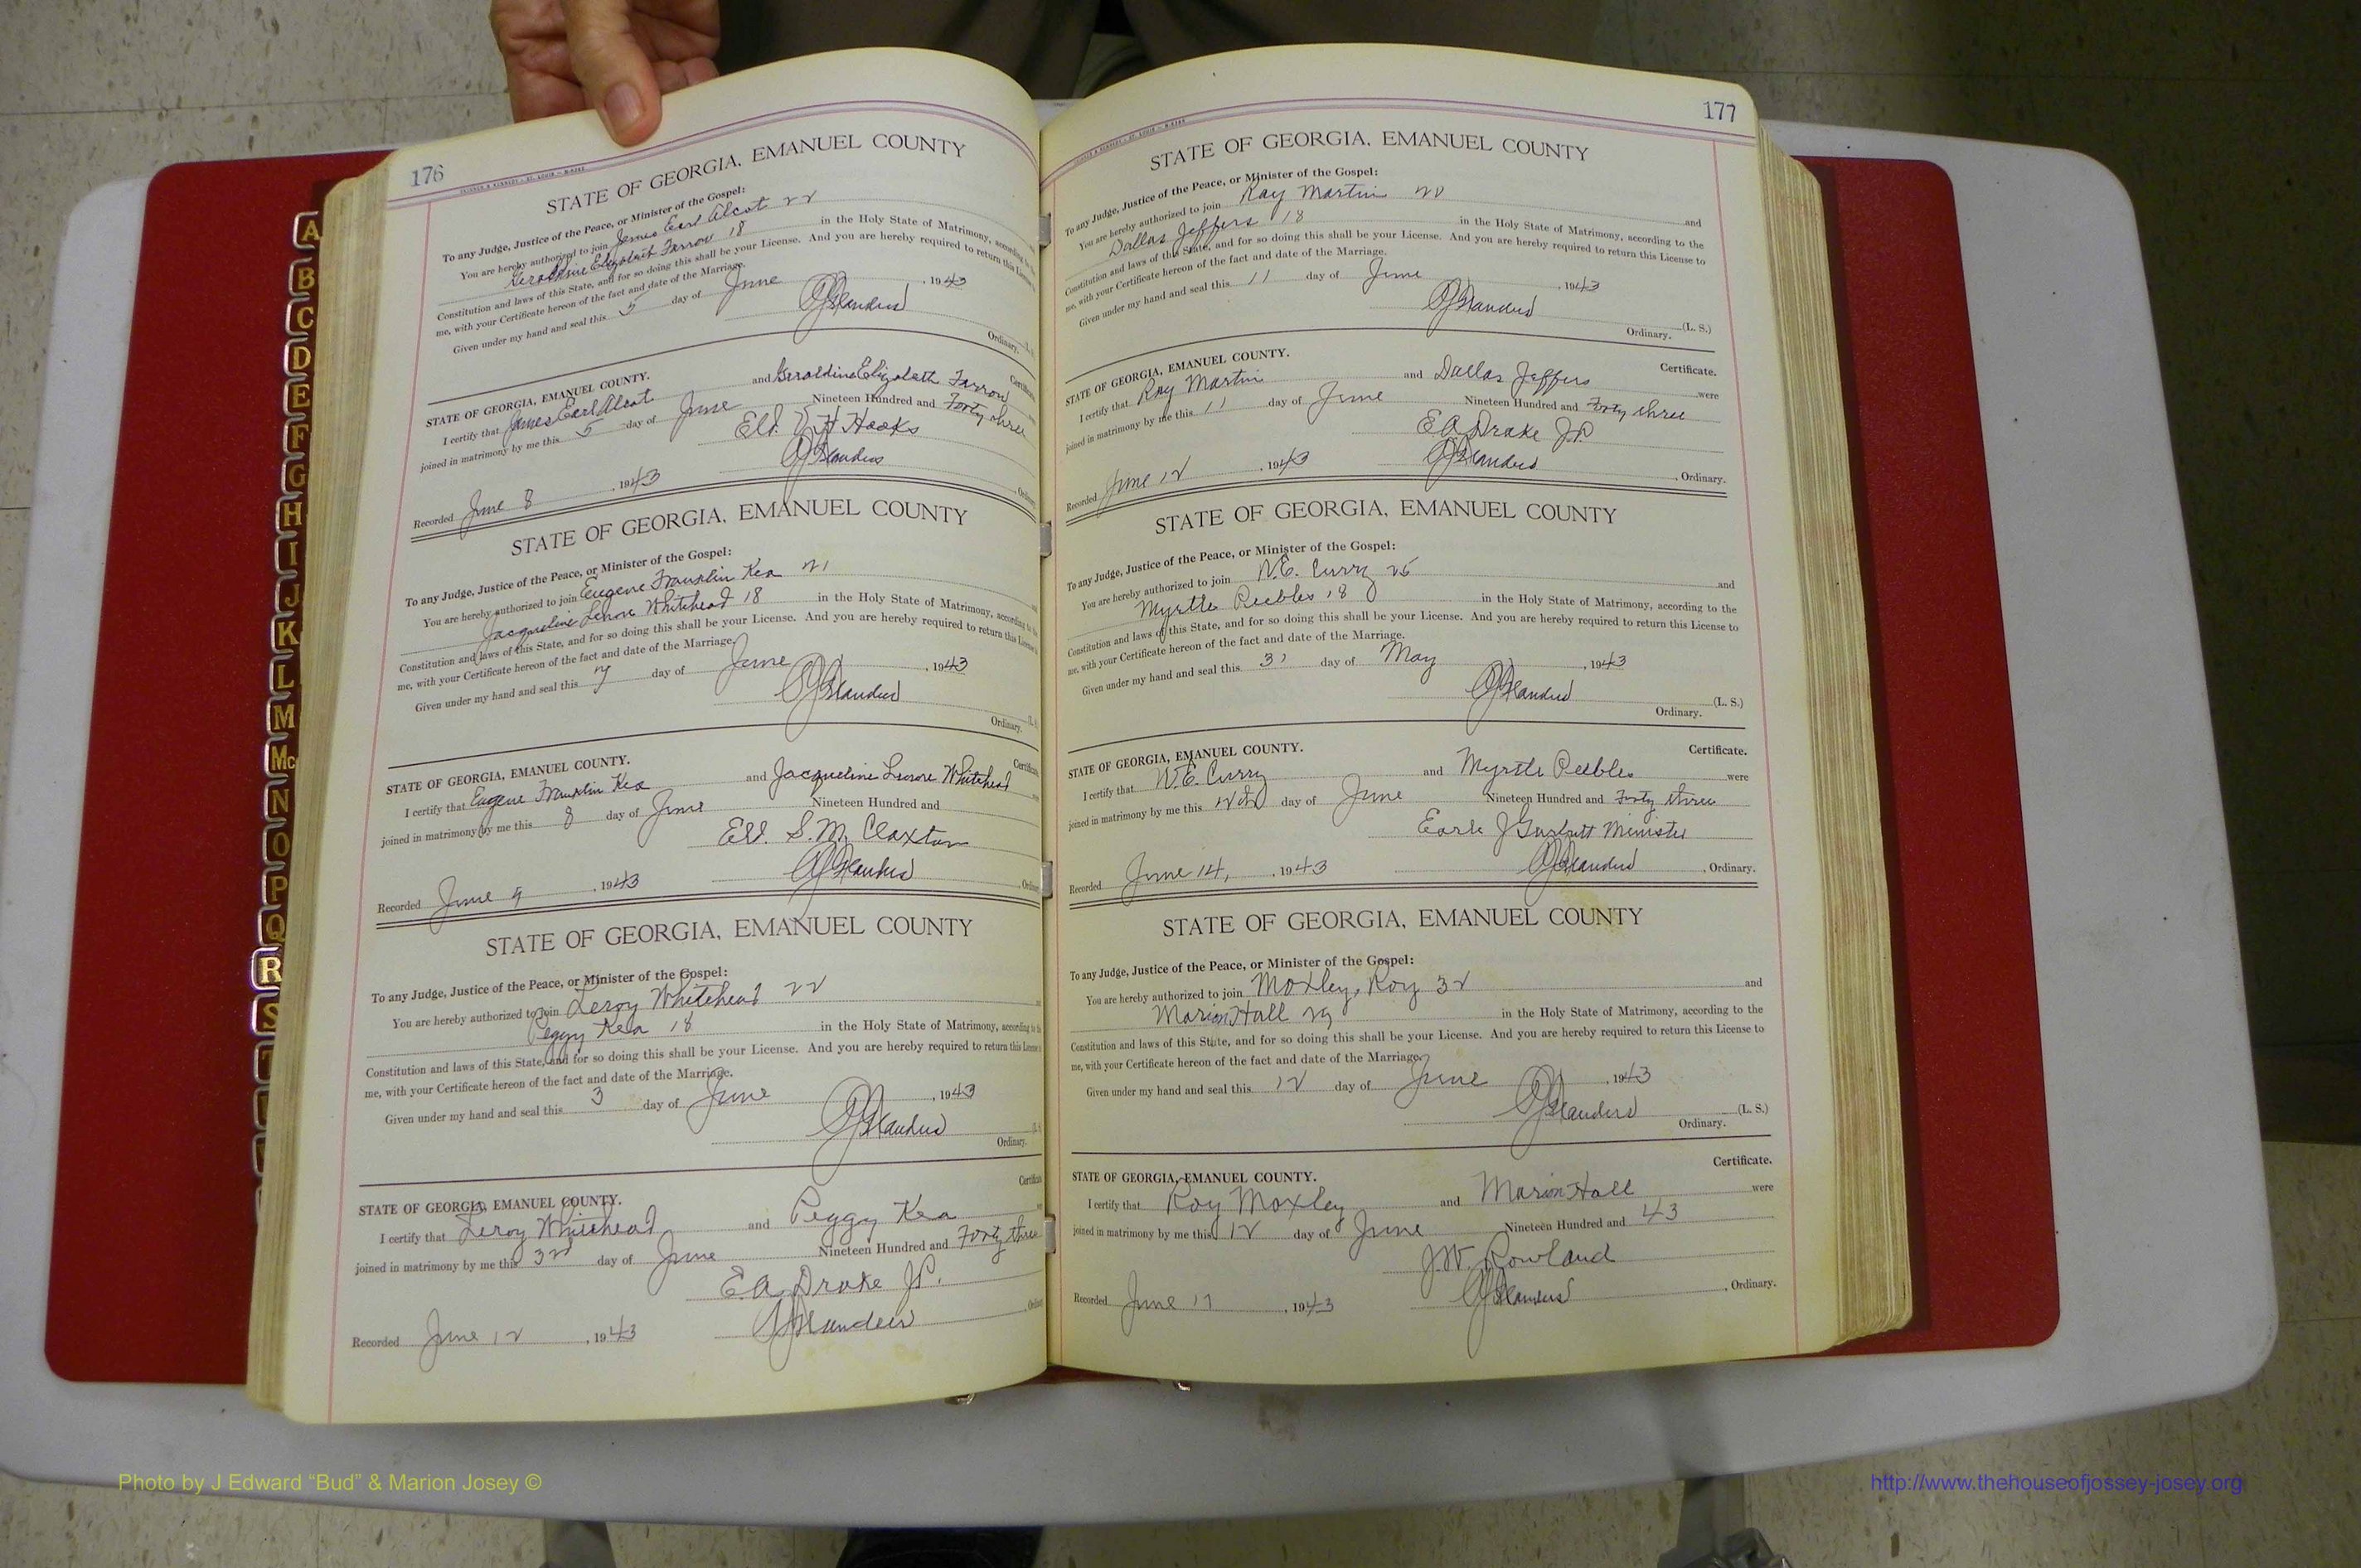 176
STATE OF GEORGIA, EMANUEL COUNTY
To any Judge, Justice of the Peace, or Minister of the Gospel:
You are hereby authorized to join James Earl Alcot 22
Geraldine Elizabeth Farrow 18 in the Holy State of Matrimony, according to the
Constitution and laws of this State, and for so doing this shall be your License. And you are hereby required to return this License
me, with your Certificate hereon of the fact and date of the Marriage.
Given under my hand and seal this 5 day of June, 1943
Ordinary.
Certificate.
STATE OF GEORGIA, EMANUEL COUNTY.
I certify that James Earl Alcot and Geraldine Elizabeth Farrow
joined in matrimony by me this 5 day of June Nineteen Hundred and Forty three
Eld. H Hooks
Recorded June 8, 1943
STATE OF GEORGIA, EMANUEL COUNTY
To any Judge, Justice of the Peace, or Minister of the Gospel:
You are hereby authorized to join Eugene Franklin Kea 21
Jacqueline Whitehead 18 in the Holy State of Matrimony, according to the
Constitution and laws of this State, and for so doing this shall be your License. And you are hereby required to return this License
me, with your Certificate hereon of the fact and date of the Marriage.
Given under my hand and seal this 7 day of June, 1943
Ordinary.
Certificate.
STATE OF GEORGIA, EMANUEL COUNTY.
I certify that Eugene Franklin Kea and Jacqueline Whitehead
joined in matrimony by me this 8 day of June Nineteen Hundred and
Eld. S. M. Claxton
Recorded June 9, 1943
STATE OF GEORGIA, EMANUEL COUNTY
To any Judge, Justice of the Peace, or Minister of the Gospel:
You are hereby authorized to join Leroy Whitehead 22
Peggy Kea 18 in the Holy State of Matrimony, according to the
Constitution and laws of this State, and for so doing this shall be your License. And you are hereby required to return this License
me, with your Certificate hereon of the fact and date of the Marriage.
Given under my hand and seal this 3 day of June, 1943
Ordinary.
Certificate
STATE OF GEORGIA, EMANUEL COUNTY.
I certify that Leroy Whitehead and Peggy Kea
joined in matrimony by me this 3rd day of June Nineteen Hundred and Forty three
E.A. Drake J.P.
Recorded June 12, 1943
177
STATE OF GEORGIA, EMANUEL COUNTY
To any Judge, Justice of the Peace, or Minister of the Gospel:
You are hereby authorized to join Ray Martin and
Dallas Jeffers 18 in the Holy State of Matrimony, according to the
Constitution and laws of this State, and for so doing this shall be your License. And you are hereby required to return this License to
me, with your Certificate hereon of the fact and date of the Marriage.
Given under my hand and seal this 11 day of June, 1943
(L. S.)
Ordinary.
STATE OF GEORGIA, EMANUEL COUNTY. Certificate.
I certify that Ray Martin and Dallas Jeffers were
joined in matrimony by me this 11 day of June Nineteen Hundred and Forty three
E A Drake JP
Recorded June 12, 1943 Ordinary.
STATE OF GEORGIA, EMANUEL COUNTY
To any Judge, Justice of the Peace, or Minister of the Gospel:
You are hereby authorized to join Curry 25 and
Myrtle Peebles 18 in the Holy State of Matrimony, according to the
Constitution and laws of this State, and for so doing this shall be your License. And you are hereby required to return this License to
me, with your Certificate hereon of the fact and date of the Marriage.
Given under my hand and seal this 31 day of May, 1943
(L. S.)
Ordinary.
Certificate.
STATE OF GEORGIA, EMANUEL COUNTY.
I certify that Curry and Myrtle Peebles were
joined in matrimony by me this 12th day of June Nineteen Hundred and Forty three
Earle J Minister
Recorded June 14, 1943 , Ordinary.
STATE OF GEORGIA, EMANUEL COUNTY
To any Judge, Justice of the Peace, or Minister of the Gospel:
You are hereby authorized to join Moxley, Roy 32 and
Marion Hall 29 in the Holy State of Matrimony, according to the
Constitution and laws of this State, and for so doing this shall be your License. And you are hereby required to return this License to
me, with your Certificate hereon of the fact and date of the Marriage.
Given under my hand and seal this 12 day of June, 1943
(L. S.)
Ordinary.
Certificate.
STATE OF GEORGIA, EMANUEL COUNTY.
I certify that Roy Moxley and Marion Hall were
joined in matrimony by me this 12 day of June Nineteen Hundred and 43
J.W. Rowland
Recorded June 17, 1943 , Ordinary.
A
B
C
D
E
F
G
H
I
J
K
L
M
Mc
N
O
P
Q
R
S
Photo by J Edward “Bud” & Marion Josey ©
http://www.thehouseofjossey-josey.org